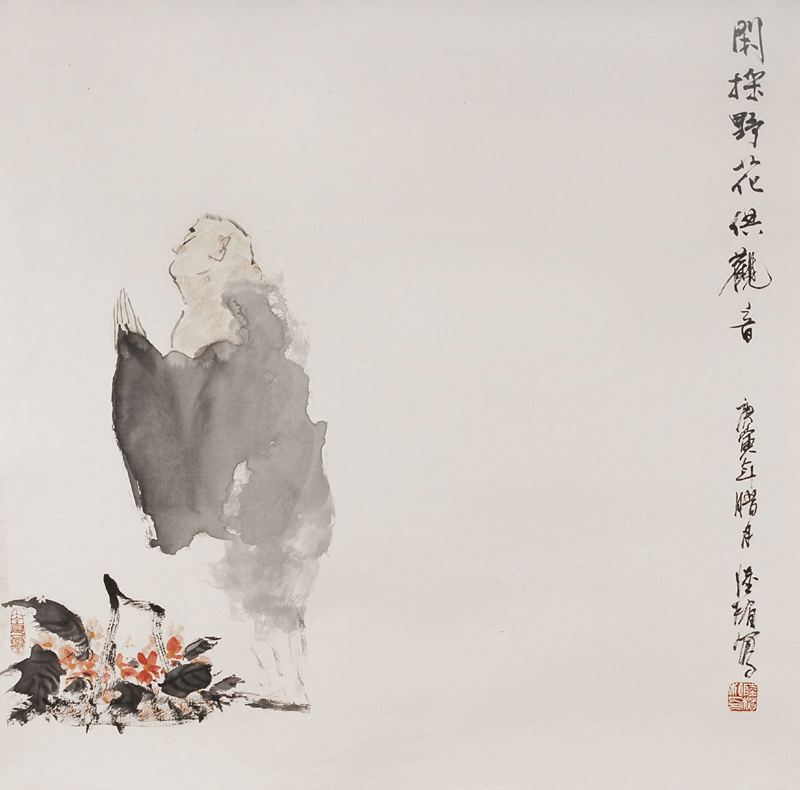 閑採野花供觀音
庚寅年腊月陸寫